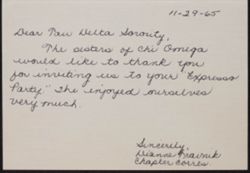 11-29-65
Dear Tau Delta Sorority,
The sisters of Chi Omega
would like to thank you
for inviting us to your "Expresso
Party." The enjoyed ourselves
very much.
Sincerely,
Dianne
Chapter Corres.